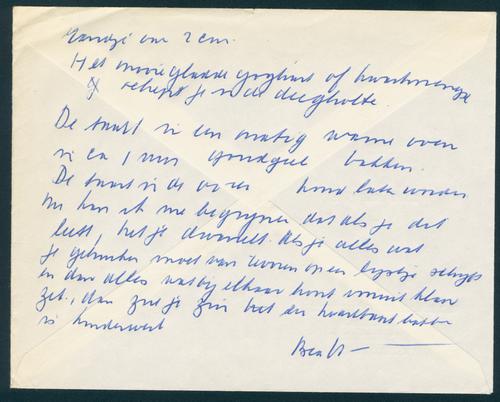 randje van 2 cm.
Het mooie gladde yoghurt of kwarkmengsel
schept je in de deegholte.
De taart in een matig warme oven
in ca 1 uur goudgeel bakken.
De taart in de oven koud laten worden
Nu kan ik me begrijpen dat als je dit
leest, het je duizelt. Als je alles wat
je gebruiken moet van tevoren op een lijstje schrijft
en dan alles vast bij elkaar komt vooruit klaar
zet, dan zul je zien dat die kwarktaart bakken
is kinderwerk